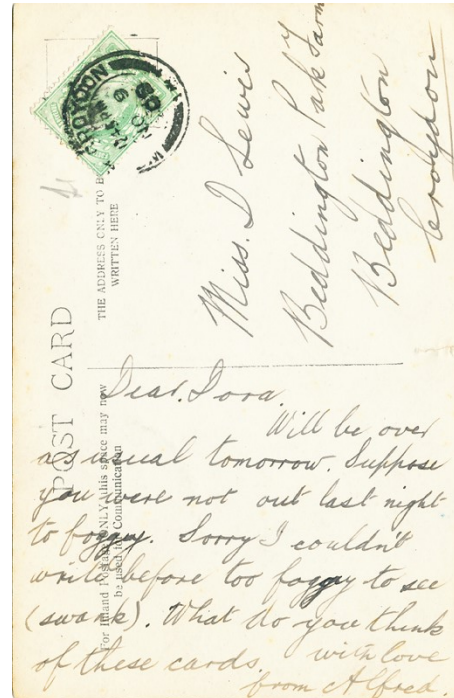 POST CARD
THE ADDRESS ONLY TO BE
WRITTEN HERE
For Inland Postage ONLY this space may now
be used for Communication
CROYDON
Miss. D Lewis
Beddington Park Farm
Beddington
Croydon
Dear. Dora.
Will be over
as usual tomorrow. Suppose
you were not out last night
to foggy. Sorry I couldn't
write before too foggy to see
(swank). What do you think
of these cards. with love
from Alfred.